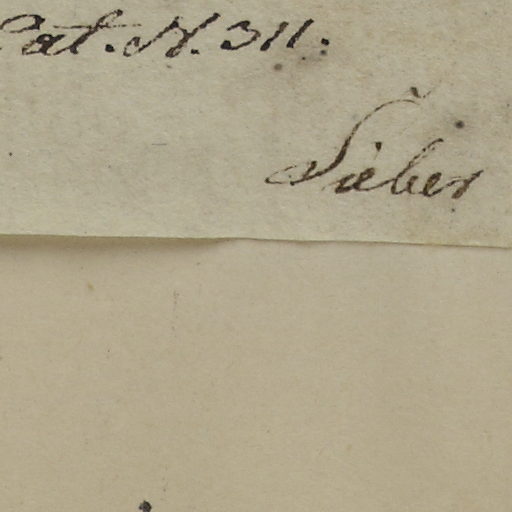 Cat. N. 311.
Sieber